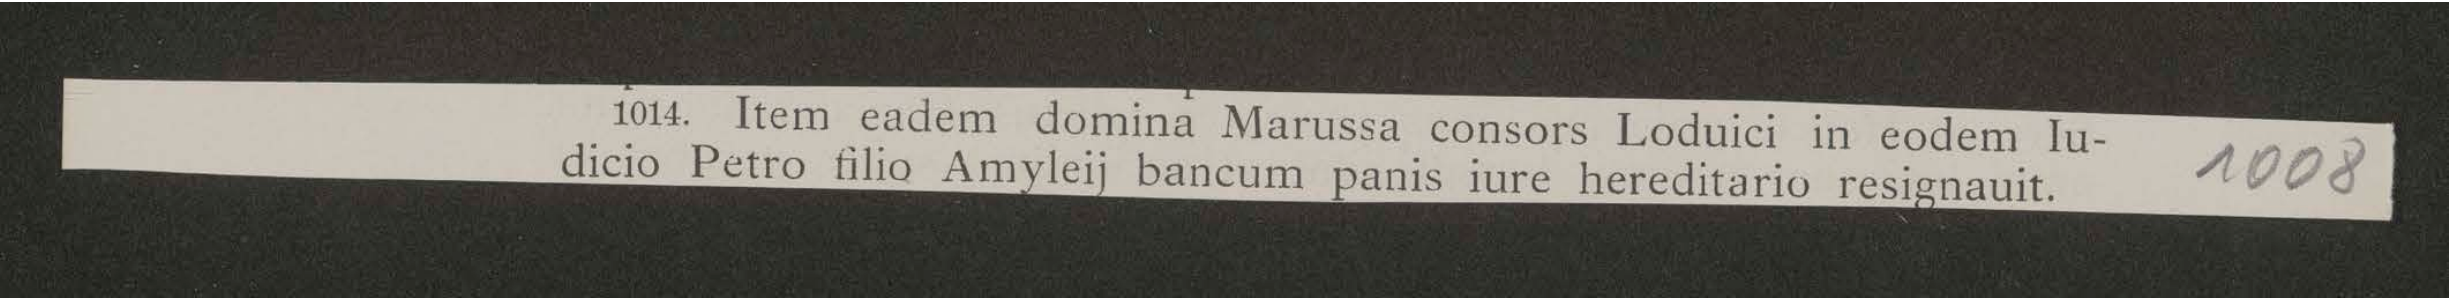 1014. Item eadem domina Marussa consors Loduici in eodem Iu-
dicio Petro filio Amyleij bancum panis iure hereditario resignauit.
1008